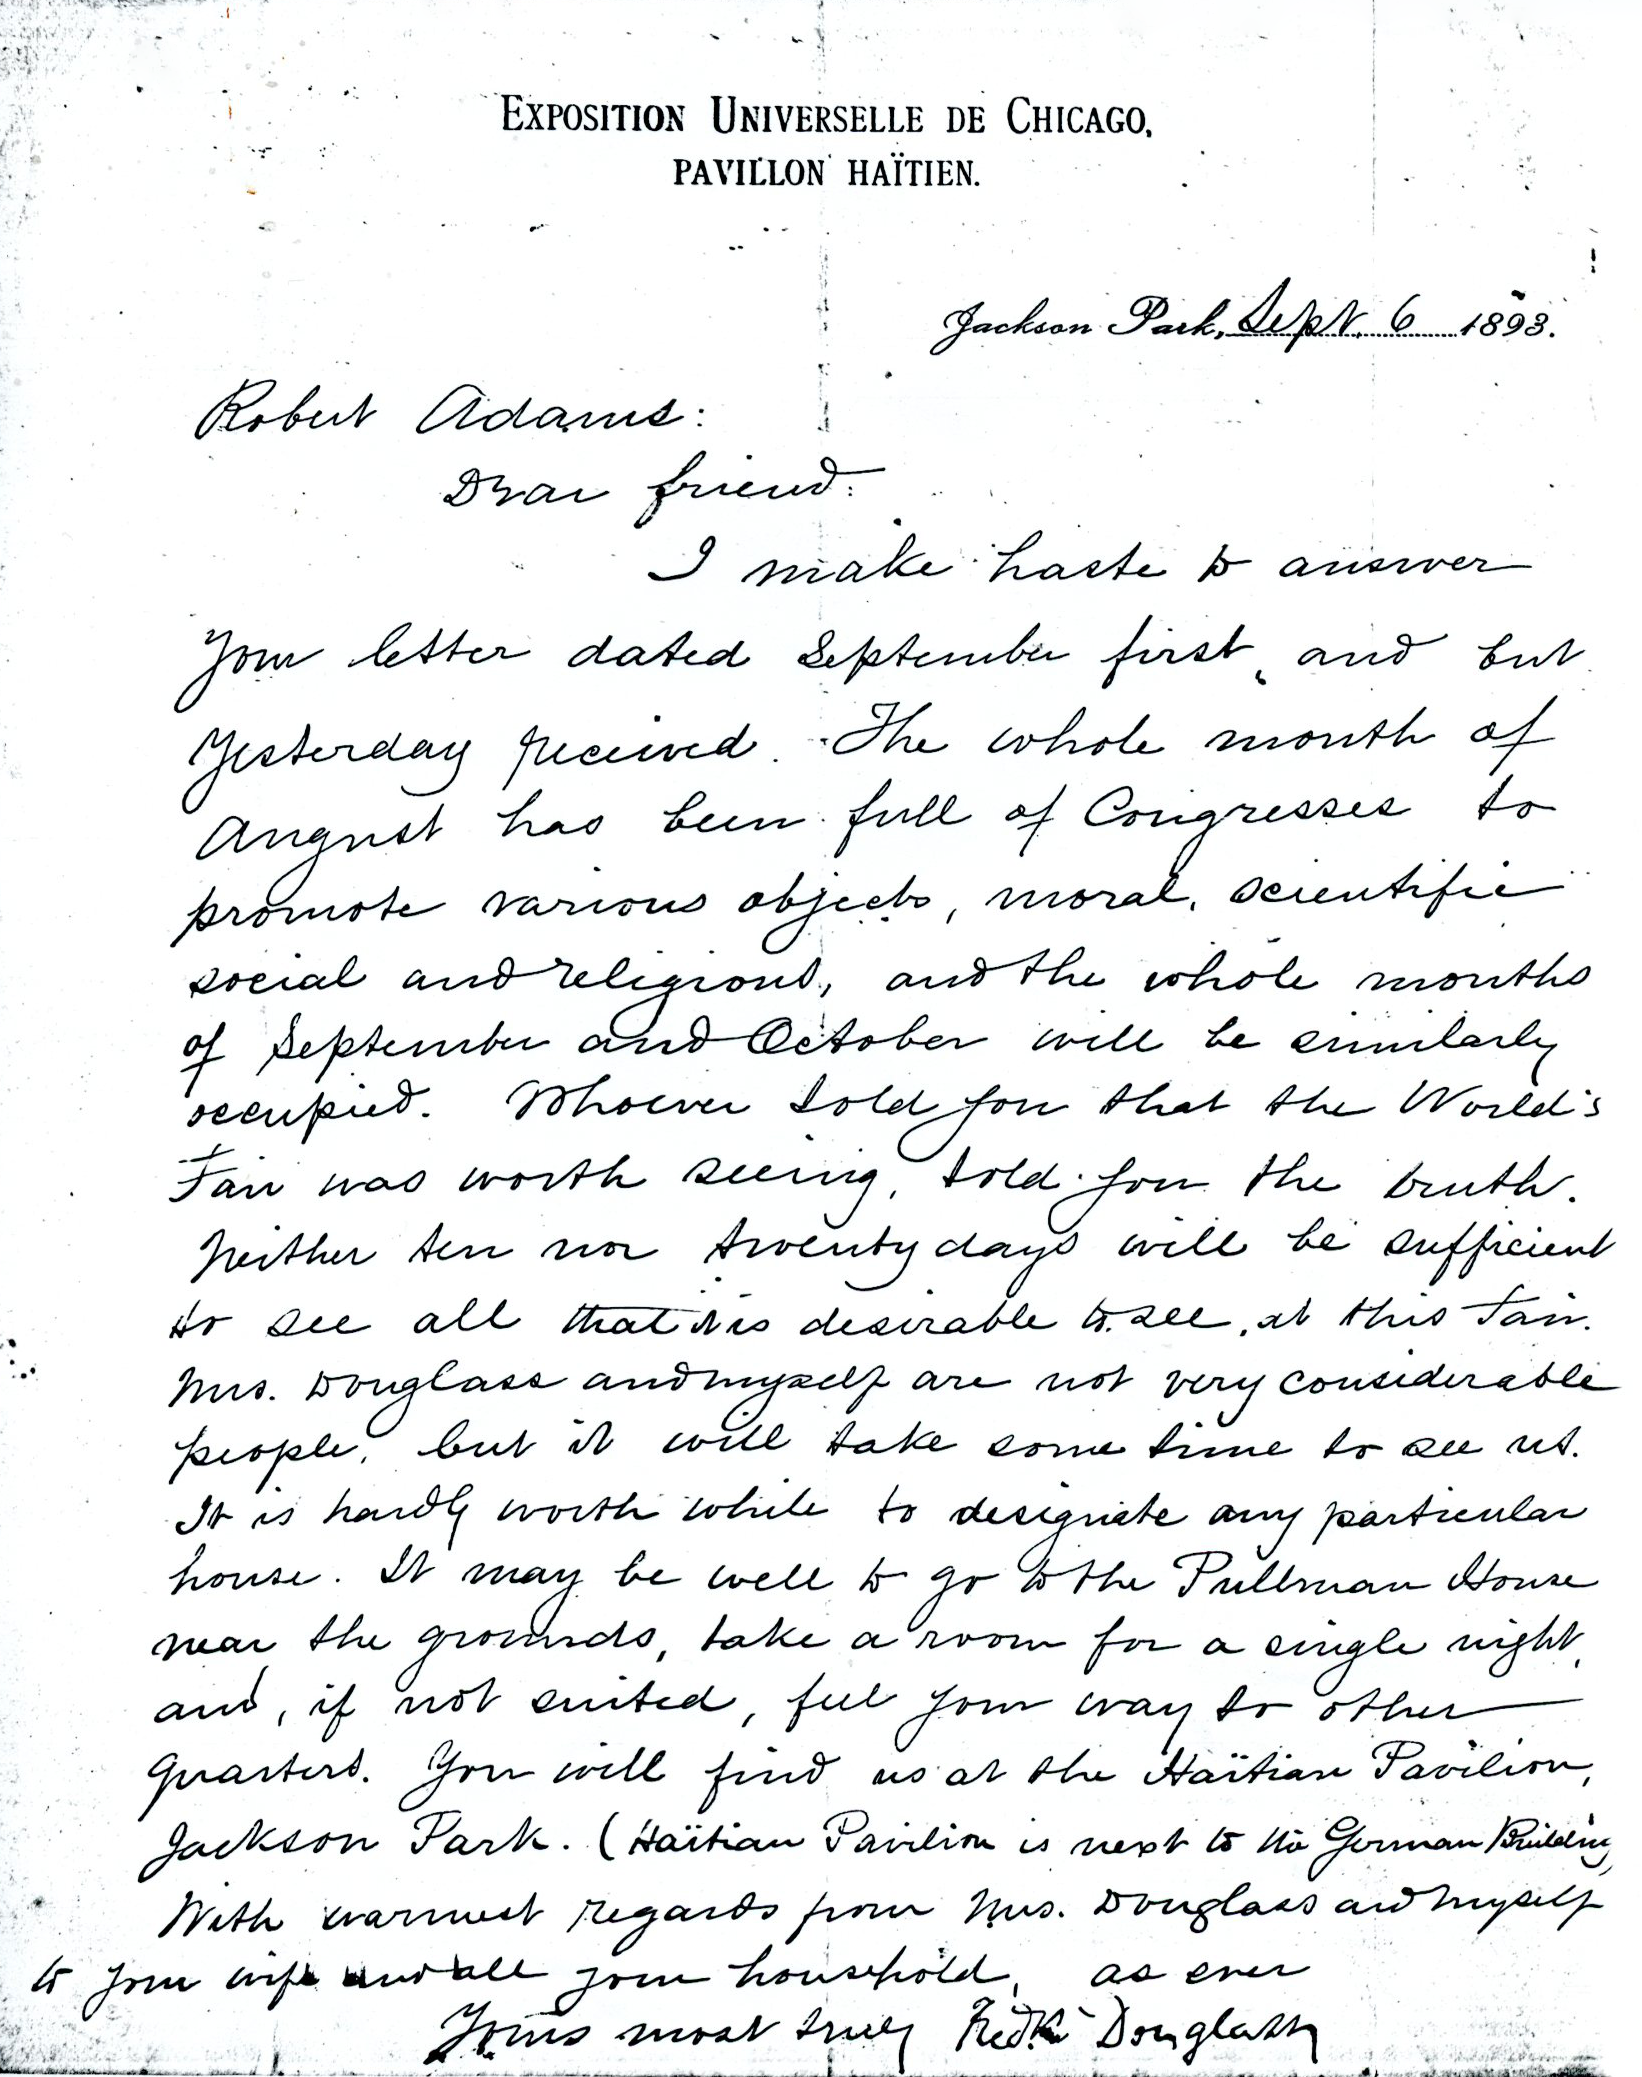 EXPOSITION UNIVERSELLE DE CHICAGO,
PAVILLON HAÏTIEN.
Jackson Park, Sept. 6 1893.
Robert Adams:
Dear friend:
I make haste to answer
your letter dated September first, and but
yesterday received. The whole month of
August has been full of Congresses to
promote various objects, moral, scientific
social and religious, and the whole months
of September and October will be similarly
occupied. Whoever told you that the World's
Fair was worth seeing, told you the truth.
Neither ten nor twenty days will be sufficient
to see all that it is desirable to see, at this Fair.
Mrs. Douglass and myself are not very considerable
people, but it will take some time to see us.
It is hardly worth while to designate any particular
house. It may be well to go to the Pullman House
near the grounds, take a room for a single night,
and, if not suited, feel your way to other
quarters. You will find us at the Haïtian Pavilion,
Jackson Park. (Haïtian Pavilion is next to the German Building)
With warmest regards from Mrs. Douglass and myself
to your wife and all your household, as ever
Yours most truly Fredk Douglass